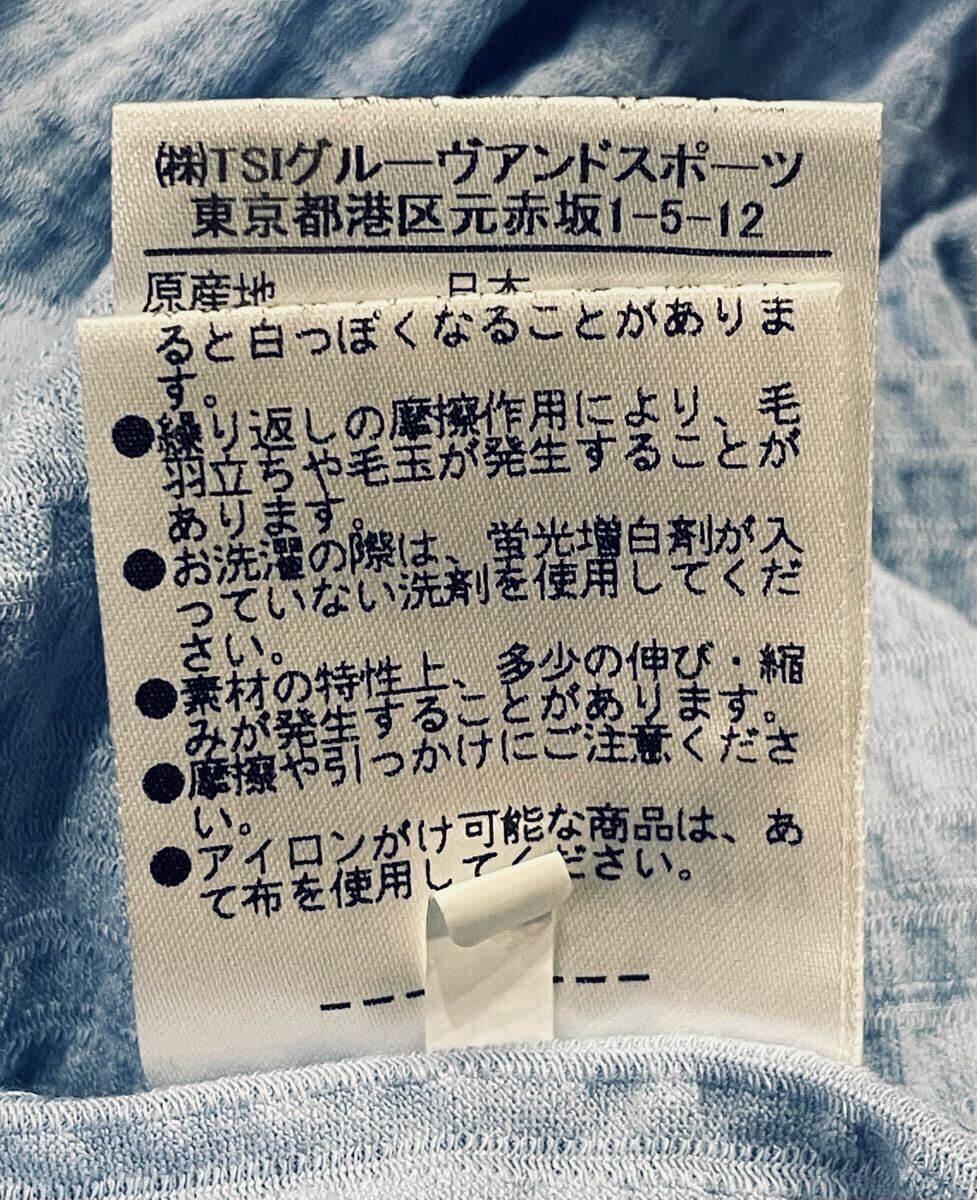 ㈱TSIグルーヴアンドスポーツ
東京都港区元赤坂1-5-12
原産地 日本
ると白っぽくなることがありま
す。
●繰り返しの摩擦作用により、毛
羽立ちや毛玉が発生することが
あります。
●お洗濯の際は、蛍光増白剤が入
っていない洗剤を使用してくだ
さい。
●素材の特性上、多少の伸び・縮
みが発生することがあります。
●摩擦や引っかけにご注意くださ
い。
●アイロンがけ可能な商品は、あ
て布を使用してください。